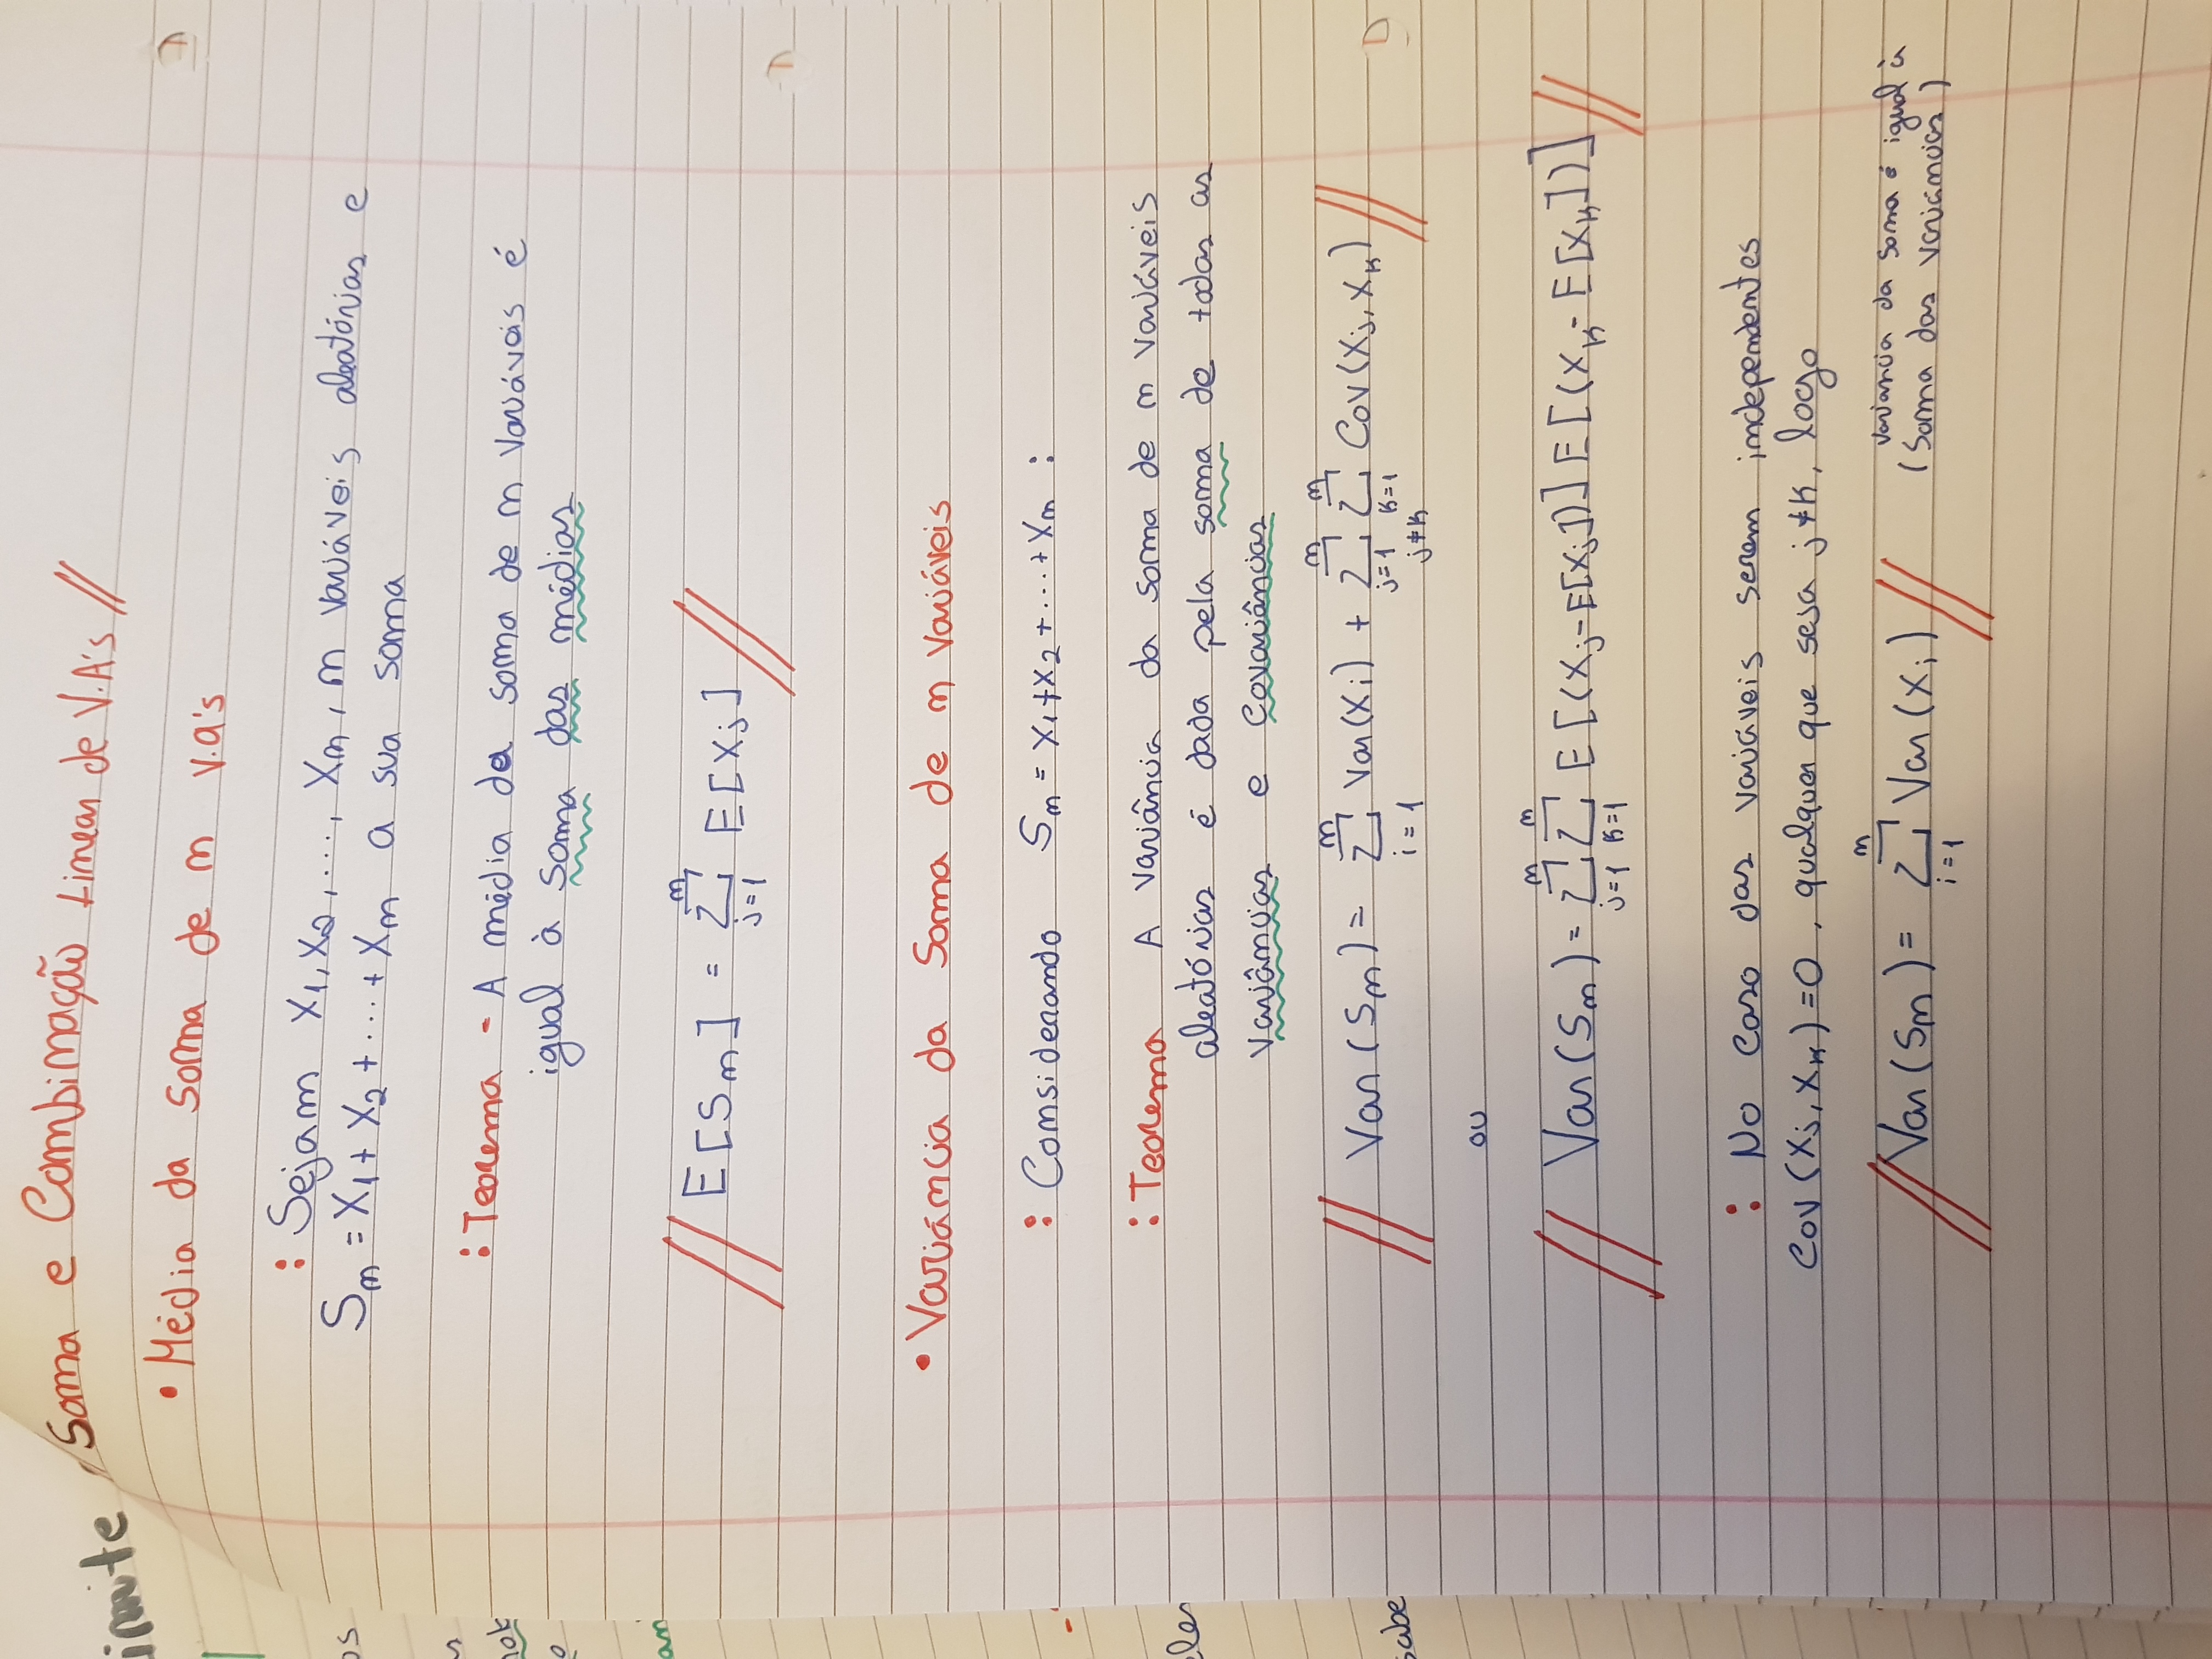 Soma e Combinação Linear de V.A's //
• Média da soma de n v.a's
: Sejam X₁, X₂, ..., Xₙ, n variáveis aleatórias e
Sₙ = X₁ + X₂ + ... + Xₙ a sua soma
: Teorema - A média da soma de n variáveis é
igual à soma das médias
// E[Sₙ] = Σⁿⱼ₌₁ E[Xⱼ] //
• Variância da Soma de n variáveis
: Considerando Sₙ = X₁ + X₂ + ... + Xₙ :
: Teorema A variância da soma de n variáveis
aleatórias é dada pela soma de todas as
variâncias e covariâncias
// Var(Sₙ) = Σⁿᵢ₌₁ Var(Xᵢ) + Σⁿⱼ₌₁ Σⁿₖ₌₁ Cov(Xⱼ, Xₖ) //
j≠k
ou
// Var(Sₙ) = Σⁿⱼ₌₁ Σⁿₖ₌₁ E[(Xⱼ - E[Xⱼ])] E[(Xₖ - E[Xₖ])] //
: No caso das variáveis serem independentes
Cov(Xⱼ, Xₖ) = 0, qualquer que seja j≠k, logo
// Var(Sₙ) = Σⁿᵢ₌₁ Var(Xᵢ) //
variancia da soma é igual à
(soma das variâncias)
imite
os
o
am
sabe